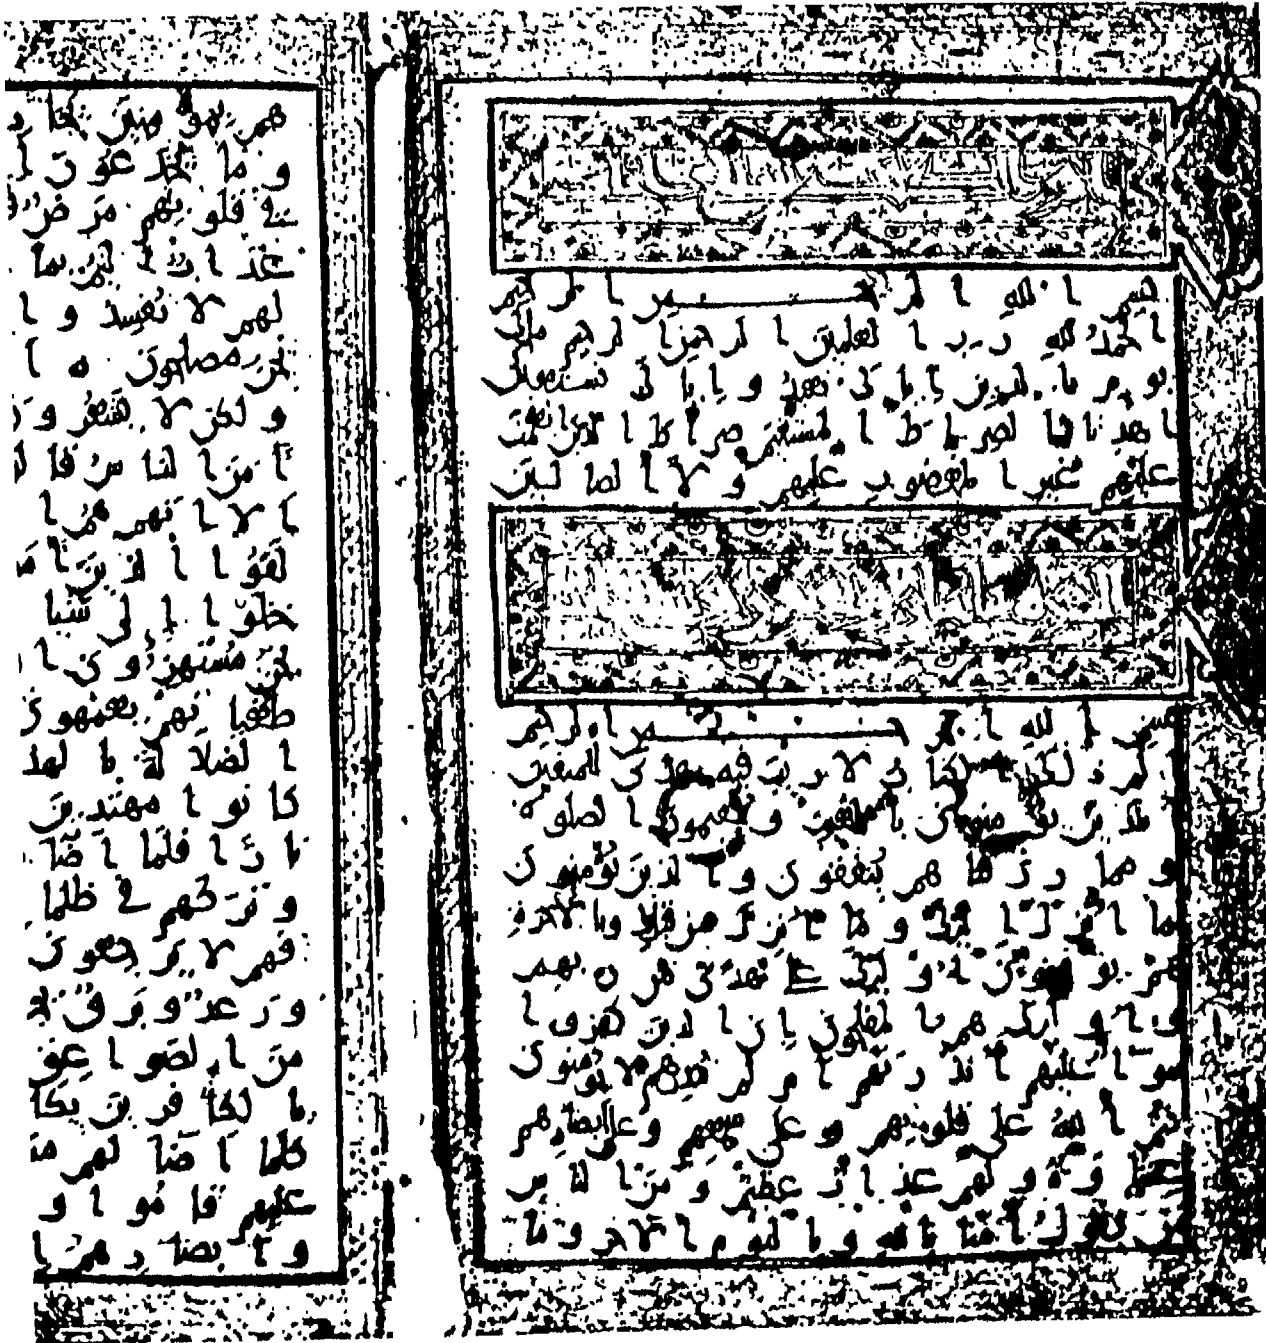 بسم الله الرحمن الرحيم
الحمد لله رب العلمين الرحمن الرحيم ملك
يوم الدين إياك نعبد وإياك نستعين
اهدنا الصراط المستقيم صراط الذين أنعمت
عليهم غير المغضوب عليهم ولا الضالين
بسم الله الرحمن الرحيم
الم ذلك الكتاب لا ريب فيه هدى للمتقين
الذين يؤمنون بالغيب ويقيمون الصلوة
ومما رزقناهم ينفقون والذين يؤمنون
بما أنزل إليك وما أنزل من قبلك وبالآخرة
هم يوقنون أولئك على هدى من ربهم
وأولئك هم المفلحون إن الذين كفروا
سواء عليهم أأنذرتهم أم لم تنذرهم لا يؤمنون
ختم الله على قلوبهم وعلى سمعهم وعلى أبصارهم
غشاوة ولهم عذاب عظيم ومن الناس
من يقول آمنا بالله وباليوم الآخر وما
هم بمؤمنين يخا
وما يخدعون
في قلوبهم مرض
عذاب أليم بما
لهم لا تفسدوا
نحن مصلحون ه ا
ولكن لا يشعرو
آمن الناس قالو
ألا إنهم هم ا
لقوا الذين آمنـ
خلوا إلى شيا
نحن مستهزؤون ا
طغيانهم يعمهون
الضلالة بالهد
كانوا مهتدين
نارا فلما أضا
وتركهم في ظلما
فهم لا يرجعون
ورعد وبرق يجـ
من الصواعق
بالكافرين يكا
كلما أضا لهم مـ
عليهم قاموا و
وأبصارهم إ